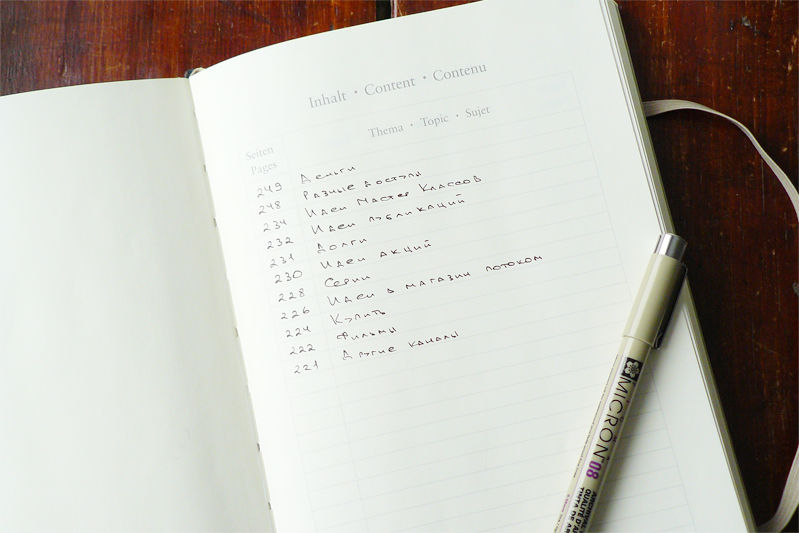 Inhalt • Content • Contenu
Seiten
Pages
Thema • Topic • Sujet
249 Деньги
248 Разные доступы
234 Идеи Мастер Классов
232 Идеи публикаций
231 Долги
230 Идеи акций
228 Серии
226 Идеи в магазин потоком
224 Купить
222 Фильмы
221 Другие каналы
MICRON 08
ARCHIVAL
QUALITÉ D'A
TINTA DE AR